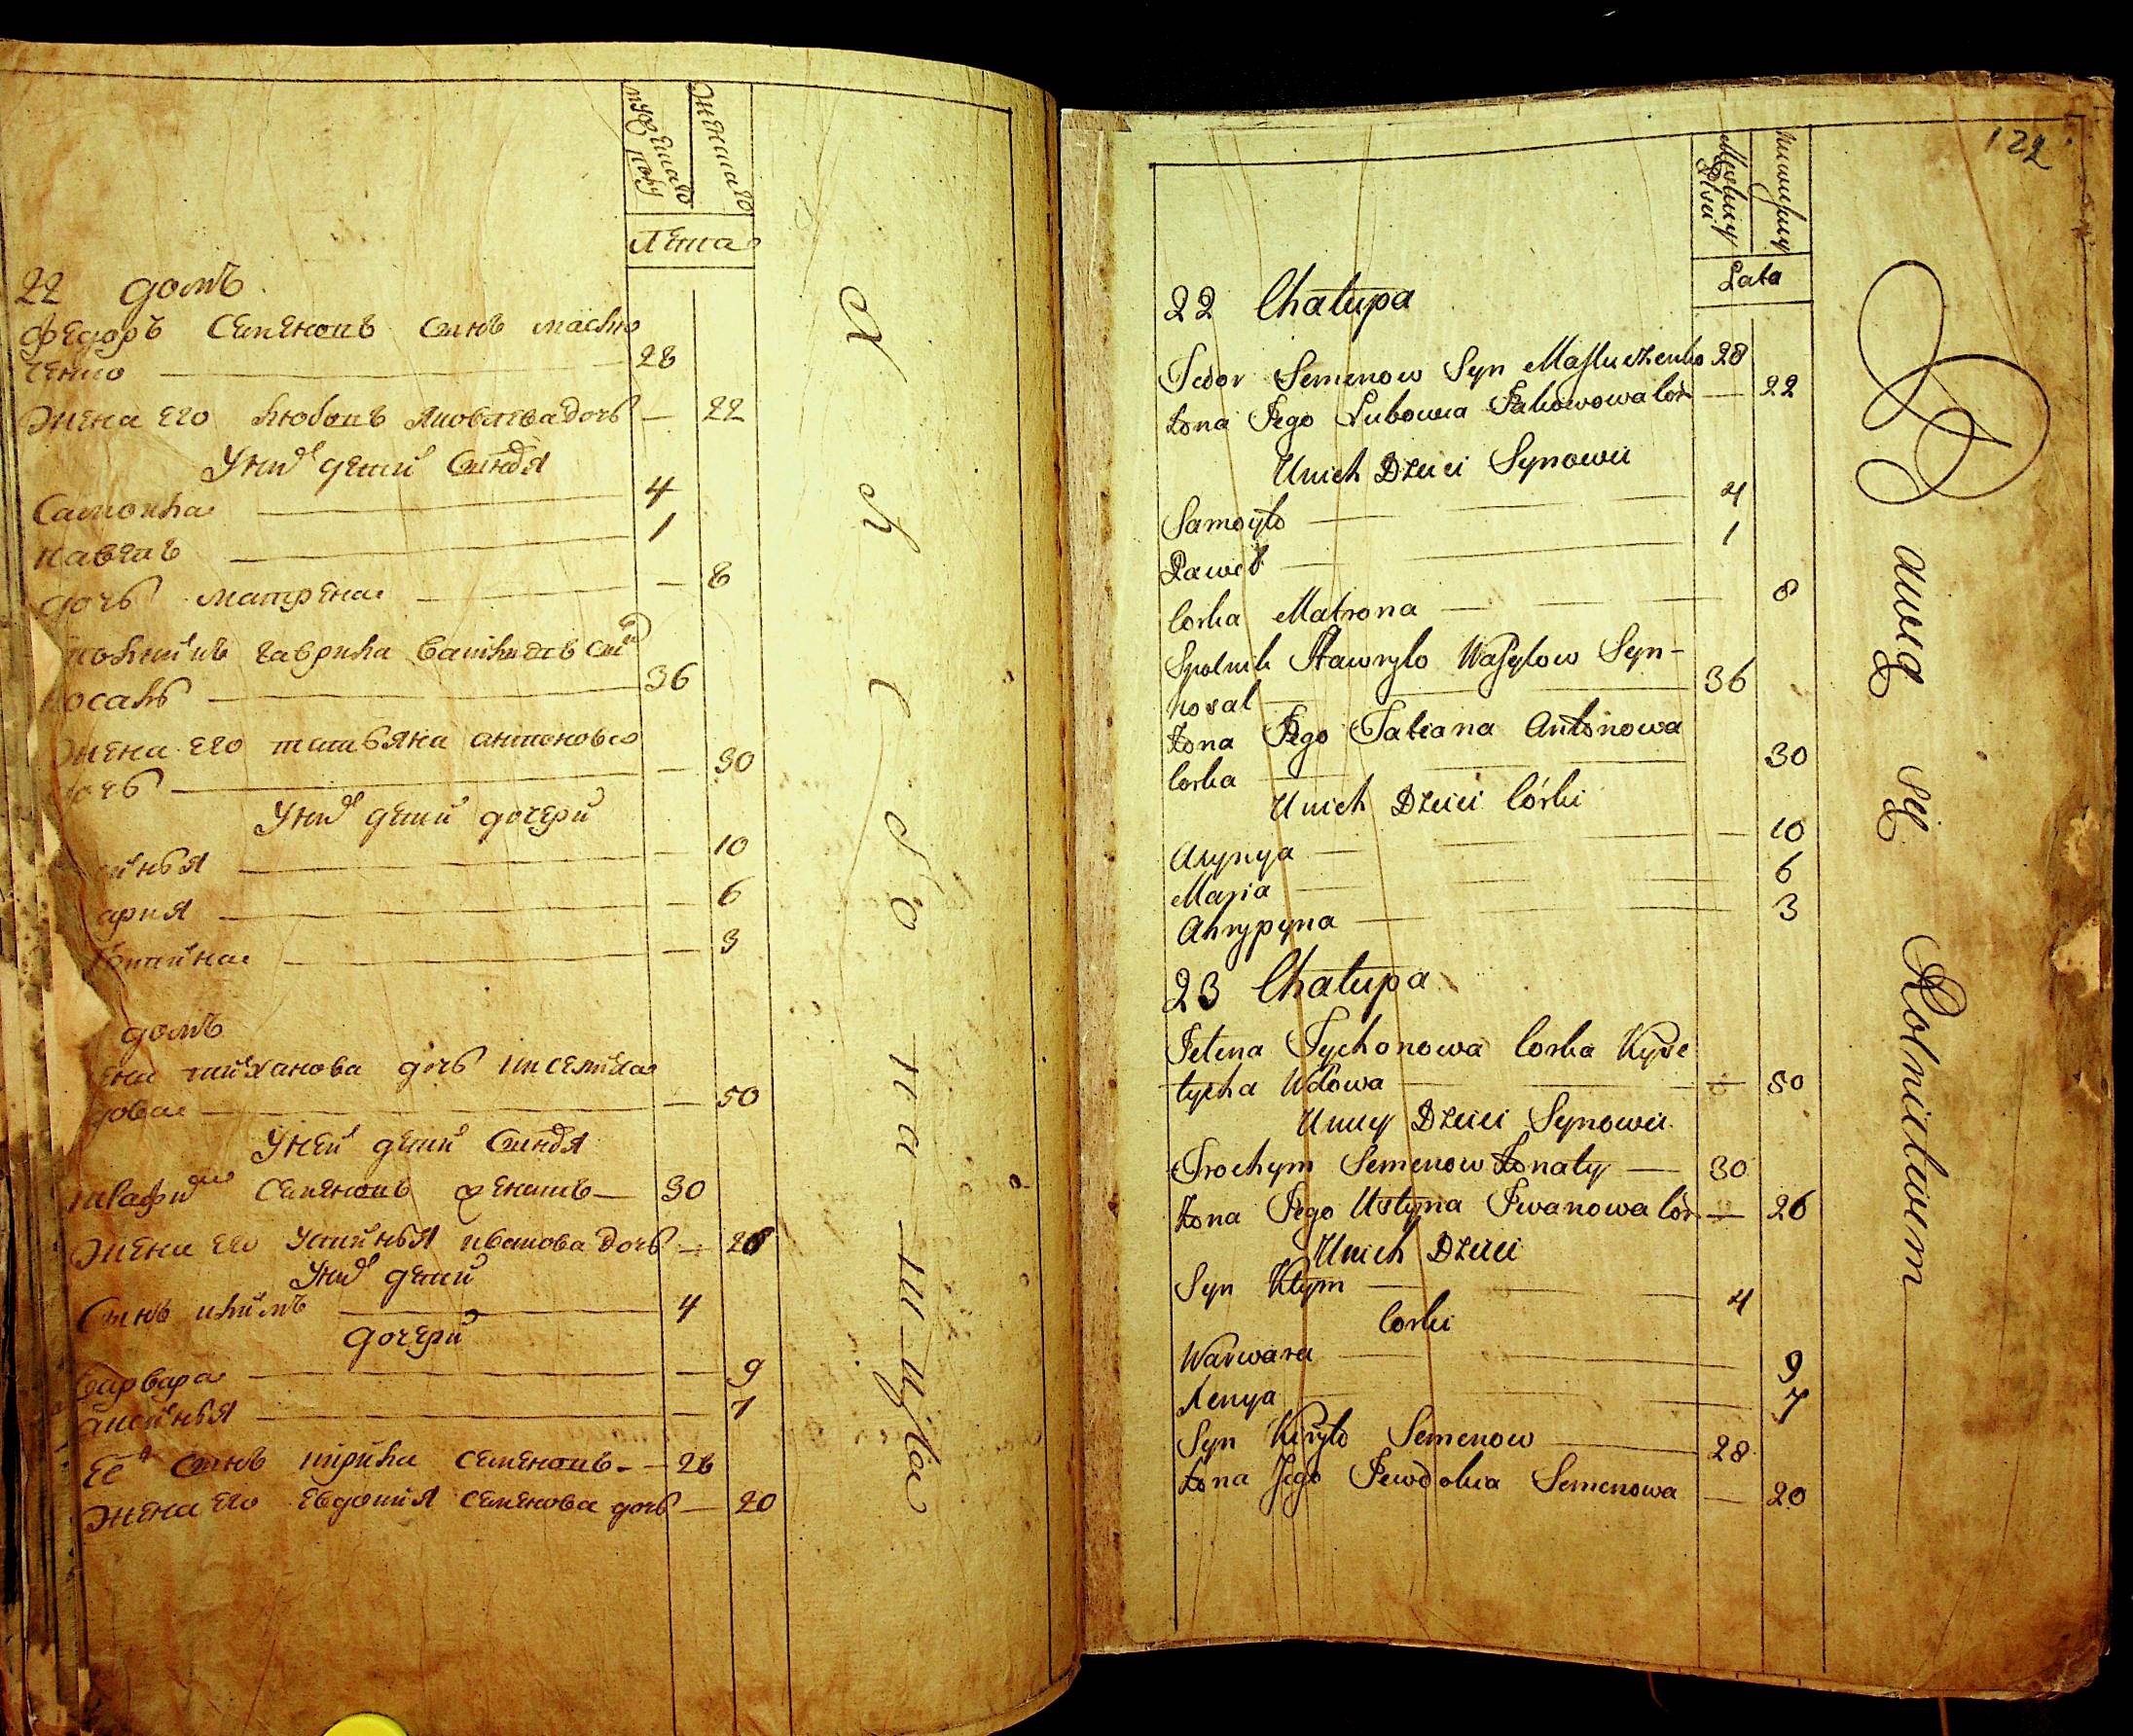 женска
Лета
22 домъ
Федоръ Семеновъ сынъ маслю
ченко 28
Жена его Любовь Яковлева дочь — 22
У них детей сыновя
Самойла 4
Павелъ 1
дочь матрена — 8
гаврила василевъ сын
косаль 36
Жена его татьяна антонова
дочь — 30
У них детей дочери
— 10
ария — 6
— 3
домъ
тиханова дочь киселиха
дова — 50
У ней детей сыновя
Семеновъ женатъ — 30
Жена его устинья иванова дочь — 26
У них детей
Сынъ климъ 4
дочери
варвара — 9
аксинья — 7
Ее сынъ кирила семеновъ — 28
Жена его евдокия семенова дочь — 20
122
Męskiey Płci
Lata
22 Chałupa
Fedor Semenow Syn Masluczenko 28
Żona Jego Lubowia Jakowowa Cór — 22
U nich Dzieci Synowie
Samoyło 4
Paweł 1
Corka Matrona 8
Spolnik Hawryło Wasylow Syn-
Kosal 36
Żona Jego Tatiana Antonowa
Corka 30
U nich Dzieci Córki
Axynya — 10
Marja 6
Ahrypyna 3
23 Chałupa
Jełena Tychonowa Corka Kyse
łycha Wdowa — 50
U niey Dzieci Synowie
Trochym Semenow Żonaty — 30
Żona Jego Ustyna Iwanowa Cór — 26
U nich Dzieci
Syn Kłym 4
Corki
Warwara 9
Xenya 7
Syn Kiryło Semenow 28
Żona Jego Jewdokia Semenowa — 20
Bawią się Rolnictwem